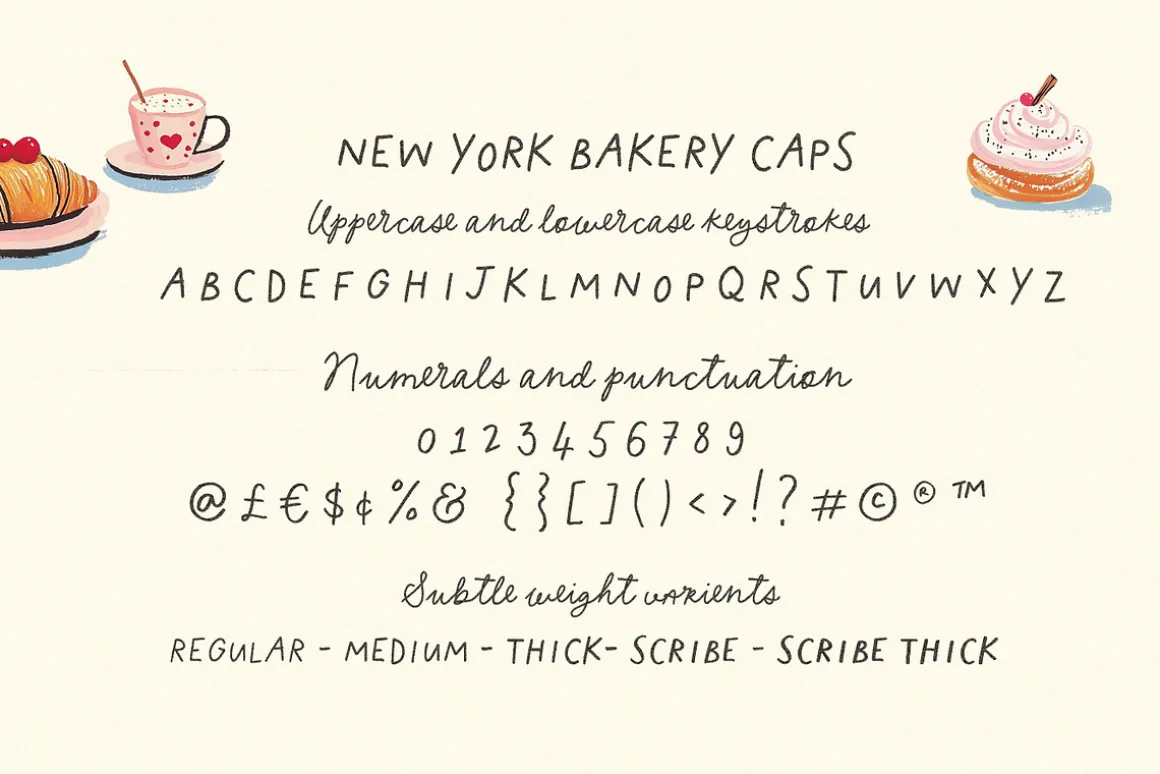 NEW YORK BAKERY CAPS
Uppercase and lowercase keystrokes
A B C D E F G H I J K L M N O P Q R S T U V W X Y Z
Numerals and punctuation
0 1 2 3 4 5 6 7 8 9
@ £ € $ ¢ % & { } [ ] ( ) < > ! ? # © ® ™
Subtle weight varients
REGULAR - MEDIUM - THICK- SCRIBE - SCRIBE THICK